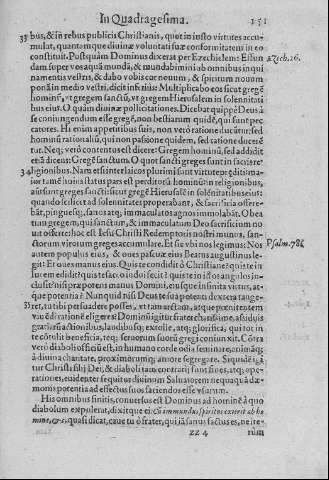 In Quadragesima. 151
33 bus, & in rebus publicis Christianis, quot in iusto virtutes accu-
mulat, quantamque diuinæ voluntati suæ conformitatem in eo
constituit. Postquàm Dominus dixerat per Ezechielem: Effun Ezech. 36.
dam super vos aquā mundā, & mundabimini ab omnibus inqui
namentis vestris, & dabo vobis cor nouum, & spiritum nouum
ponā in medio vestri, dicit Multiplicabo eos sicut gregē
hominū, vt gregem sanctū, vt gregem Hierusalem in solennitatib
bus eius. O quàm diuinæ pollicitationes. Dicebat quippè Deus à
se coniungendum esse gregē, non bestiarum quidē, qui pro pec
catores. Hi enim appetitibus suis, non verò ratione ducūtur: sed
hominū rationaliū, qui non pasione quidem, sed ratione ducerē
tur. Neq; verò contentus est dicere: Gregem hominū, sed addidit
et à dicens: Gregē sanctum. O quot sancti greges sunt in sacris re
34 ligionibus. Nam etsi inter laicos plurimi sunt virtute præditi: ma-
ior tamē huius status pars est perditorū hominū in religionibus,
aūt sunt greges sancti: sicut gregē Hierusalē in solēnitatibus eius:
quando scilicet ad solennitates properabant, & sacrificia offere-
bāt, pingues q;, sanos atq; immaculatos agnos immolabāt. O bea
tum gregem, qui sanctum, & immaculatum Deo sacrificium no-
ut offert: hoc est Iesu Christi Redemptoris nostri munus, san-
ctorum virorum greges accumulare. Et sic vbi nos legimus: Nos Psalm. 78.
autem populus eius, & oues pascuæ eius Beatus augustinus le-
git: Et oues manus eius. Quis te condidit ô Christiane? quis te in
lucem edidit? quis te sacco induit fecit? quis te in istos angulos in-
clusit? nisi præpotens manus Domini, eiusque infinita virtus, at-
que potentia? Nunquid nisi Deus te sua potenti dextera tange-
35 ret, tu tibi persuadere posses, vt tam arctam, atque pœnitentem
viuēdi rationē eligeres? Dominū igitur frater charissime, assiduis
gratiarū actionibus, laudibusq; extolle, atq; glorifica, qui tot in
te cōtulit beneficia, teq; seruorum suorū gregi coniunxit. Cōtra
verò diaboli officiū est, in humano corde odia seminare, animāq;
à diuina charitate, proximorumq; amore segregare. Siquidē si, à
tur Christi filij Dei, & diaboli tam contrarij sunt fines, atq; ope-
rationes, euidenter sequitur diuinum Saluatorem nequaquā dæ-
monis potentia ad effectus suos faciendos esse vsurum.
His omnibus finitis, conuersus est Dominus ad hominē à quo
diabolum expulerat, dixitque ei: Cū immundus spiritus exierit ab ho
mine, &c. quasi dicat, caue tu ô frater, qui iā sanus factus es, ne ite-
zz 4 rùm